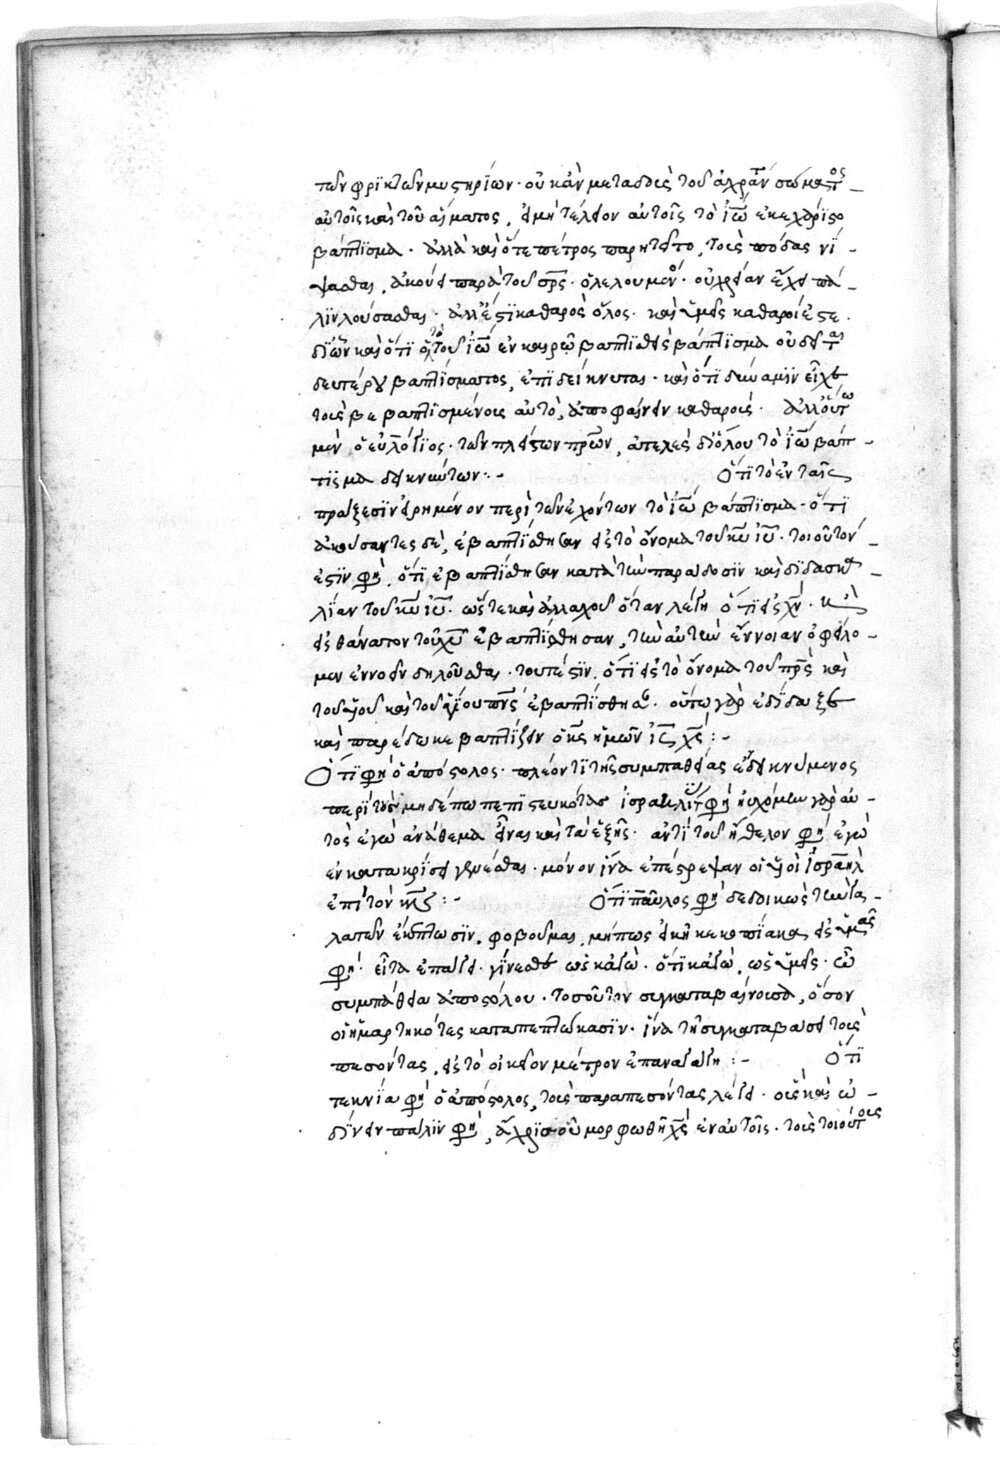 τῶν φρικτῶν μυστηρίων· οὐκ ἂν μεταδοὺς τοῦ ἀχράντου σώματος
αὐτοῖς καὶ τοῦ αἵματος, εἰ μὴ τέλειον αὐτοῖς τὸ ἰῶ ἐκεχάριστο
βάπτισμα· ἀλλὰ καὶ ὅτε πέτρος παρῃτεῖτο, τοὺς πόδας νί-
ψασθαι, ἀκούει παρὰ τοῦ σρς· ὁ λελουμένος· οὐ χρείαν ἔχει πά-
λιν λούσασθαι· ἀλλ' ἔστι καθαρὸς ὅλος· καὶ ὑμεῖς καθαροί ἐστε·
δι' ὧν καὶ ὅτι τὸ τοῦ ἰῶ ἐν καιρῷ βαπτισθεὶς βάπτισμα οὐ δεῖται
δευτέρου βαπτίσματος, ἐπιδείκνυται· καὶ ὅτι δύναμιν εἶχε
τοὺς βεβαπτισμένους αὐτὸ, ἀποφαίνειν καθαρούς· ἀλλ' οὕτω
μὲν ὁ εὐλόγιος· τῶν πλείστων πρων, ἀτελὲς διόλου τὸ ἰῶ βάπ-
τισμα δεικνύντων:- Ὅτι τὸ ἐν ταῖς
πράξεσιν εἰρημένον περὶ τῶν ἐχόντων τὸ ἰῶ βάπτισμα· ὅτι
ἀκούσαντες δὲ, ἐβαπτίσθησαν εἰς τὸ ὄνομα τοῦ κυ ιυ· τοιοῦτόν
ἐστιν φη, ὅτι ἐβαπτίσθησαν κατὰ τὴν παράδοσιν καὶ διδασκα-
λίαν τοῦ κυ ιυ· ὥστε καὶ ἀλλαχοῦ ὅταν λέγῃ ὅτι εἰς χν· καὶ
εἰς θάνατον τοῦ χυ ἐβαπτίσθησαν, τὴν αὐτὴν ἔννοιαν ὀφείλο-
μεν ἐννοεῖν δηλοῦσθαι· τουτέστιν, ὅτι εἰς τὸ ὄνομα τοῦ πρς καὶ
τοῦ υἱοῦ καὶ τοῦ ἁγίου πνς ἐβαπτίσθησαν· οὕτω γὰρ ἐδίδαξε
καὶ παρέδωκε βαπτίζειν ὁ κς ἡμῶν ις χς:-
Ὅτι φη ὁ ἀπόστολος· πλέον τι τῆς συμπαθείας ἐνδεικνύμενος
περὶ τοὺς μηδέπω πεπιστευκότας ἰσραηλίτας φη ηὐχόμην γὰρ αὐ-
τὸς ἐγὼ ἀνάθεμα εἶναι καὶ τὰ ἑξῆς· ἀντὶ τοῦ ἤθελον φη ἐγὼ
ἐν κατακρίσει γενέσθαι· μόνον ἵνα ἐπέστρεψαν οἱ υἱοὶ ἰσραηλ
ἐπὶ τὸν κν:- Ὅτι παῦλος φη δεδοικὼς τὴν γα-
λατῶν ἔκπτωσιν. φοβοῦμαι, μήπως εἰκῆ κεκοπίακα εἰς ὑμᾶς
φη· εἶτα ἐπάγει· γίνεσθε ὡς κἀγὼ· ὅτι κἀγὼ, ὡς ὑμεῖς· ὢ
συμπάθεια ἀποστόλου· τοσοῦτον συγκαταβαίνουσα, ὅσον
οἱ ἡμαρτηκότες καταπεπτώκασιν· ἵνα τῇ συγκαταβάσει τοὺς
πεσόντας, εἰς τὸ οἰκεῖον μέτρον ἐπαναγάγῃ:- Ὅτι
τεκνία φη ὁ ἀπόστολος, τοὺς παραπεσόντας λέγει· οὓς καὶ ὠ-
δίνειν πάλιν φη, ἄχρις οὗ μορφωθῇ χς ἐν αὐτοῖς· τοὺς τοιούτους